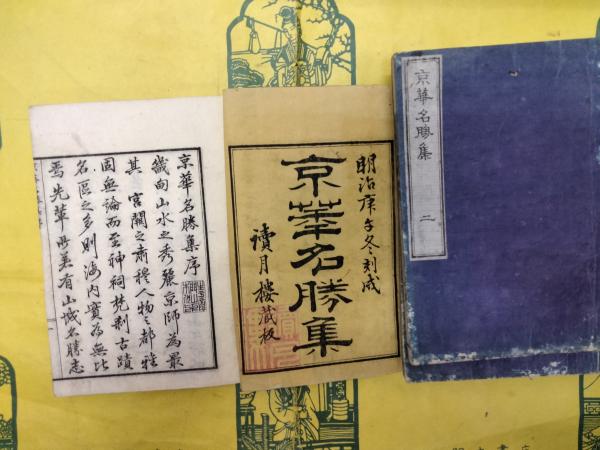 京華名勝集 二
明治庚子冬刻成
京華名勝集
讀月樓藏板
京華名勝集序
畿甸山水之秀麗京師為最
其宮闕之肅穆人物之都雅
固無論而至神祠梵刹古蹟
名區之多則海内實為無比
焉先輩有山城名勝志